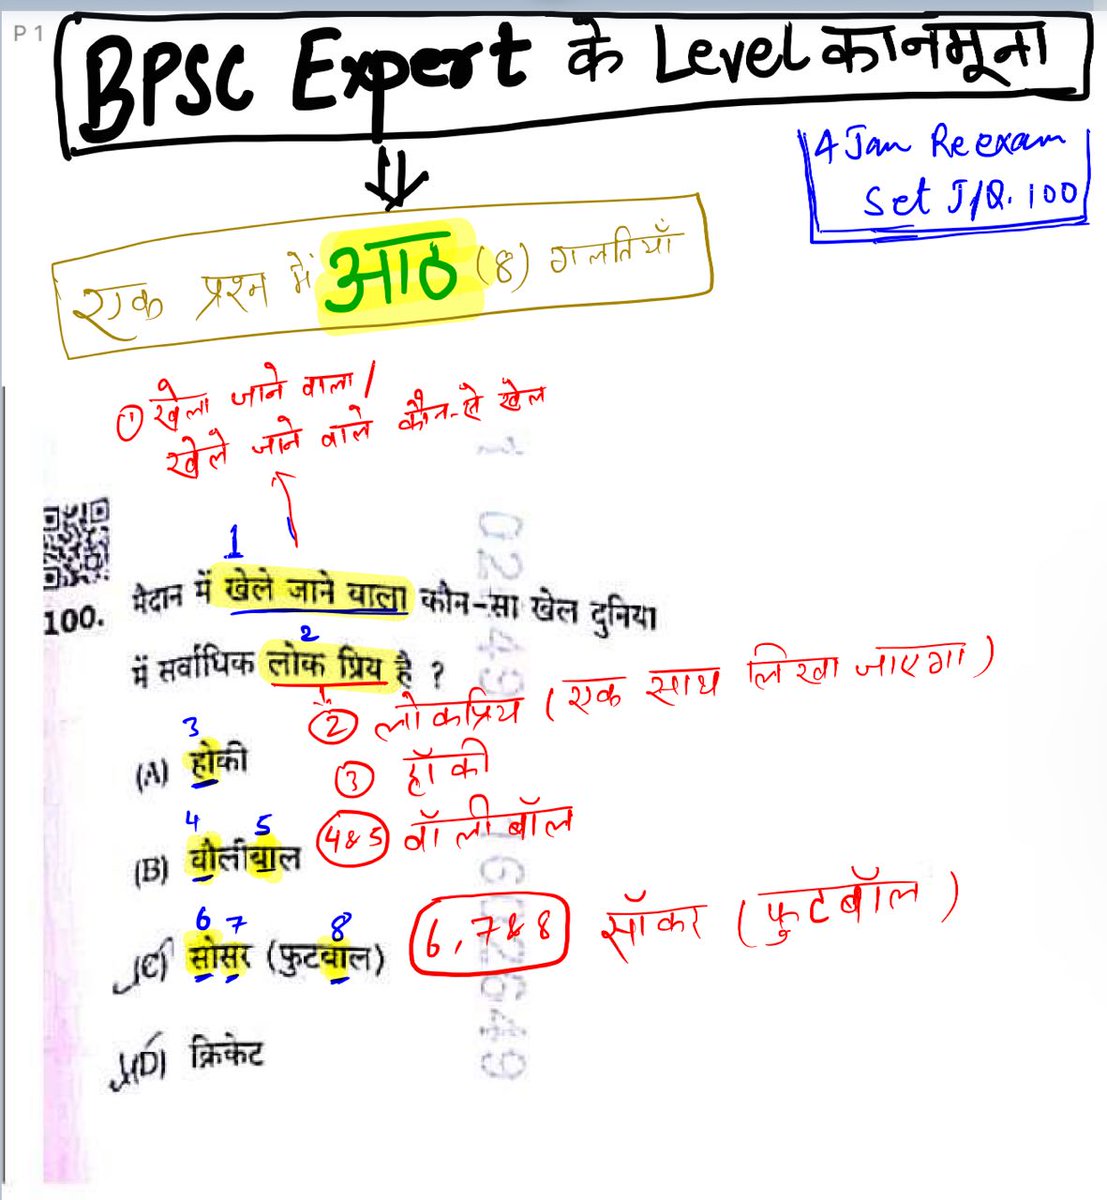 P 1
BPSC Expert के Level का नमूना
4 Jan Re exam
Set J/Q. 100
एक प्रश्न में आठ (8) गलतियाँ
① खेला जाने वाला /
खेले जाने वाले कौन-से खेल
1
100. मैदान में खेले जाने वाला कौन-सा खेल दुनिया
2
में सर्वाधिक लोक प्रिय है ?
② लोकप्रिय (एक साथ लिखा जाएगा)
3
(A) होकी
③ हॉकी
4 5
(B) वोलीबाल
4&5 वॉलीबॉल
6 7 8
(C) सोसर (फुटबाल)
6, 7 & 8 सॉकर (फुटबॉल)
(D) क्रिकेट